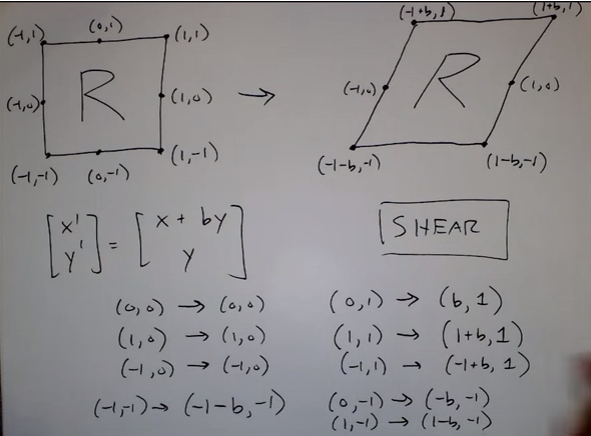 (-1,1) (0,1) (1,1) (-1+b,1) (1+b,1)
(-1,0) R (1,0) → (-1,0) R (1,0)
(-1,-1) (0,-1) (1,-1) (-1-b,-1) (1-b,-1)
[x' y'] = [x + by y]
SHEAR
(0,0) → (0,0)
(1,0) → (1,0)
(-1,0) → (-1,0)
(-1,-1) → (-1-b,-1)
(0,1) → (b,1)
(1,1) → (1+b,1)
(-1,1) → (-1+b,1)
(0,-1) → (-b,-1)
(1,-1) → (1-b,-1)